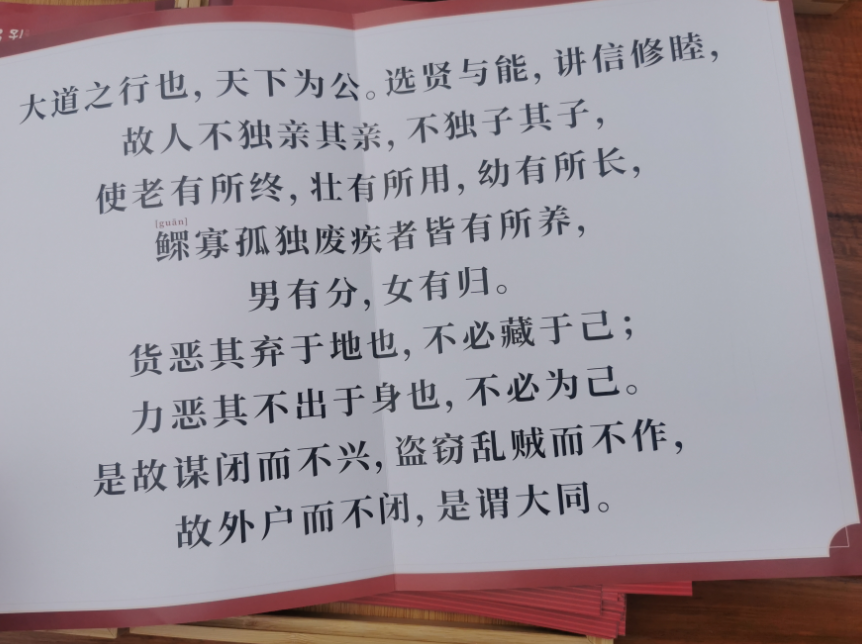 大道之行也，天下为公。选贤与能，讲信修睦，
故人不独亲其亲，不独子其子，
使老有所终，壮有所用，幼有所长，
[guān]
鳏寡孤独废疾者皆有所养，
男有分，女有归。
货恶其弃于地也，不必藏于己；
力恶其不出于身也，不必为己。
是故谋闭而不兴，盗窃乱贼而不作，
故外户而不闭，是谓大同。